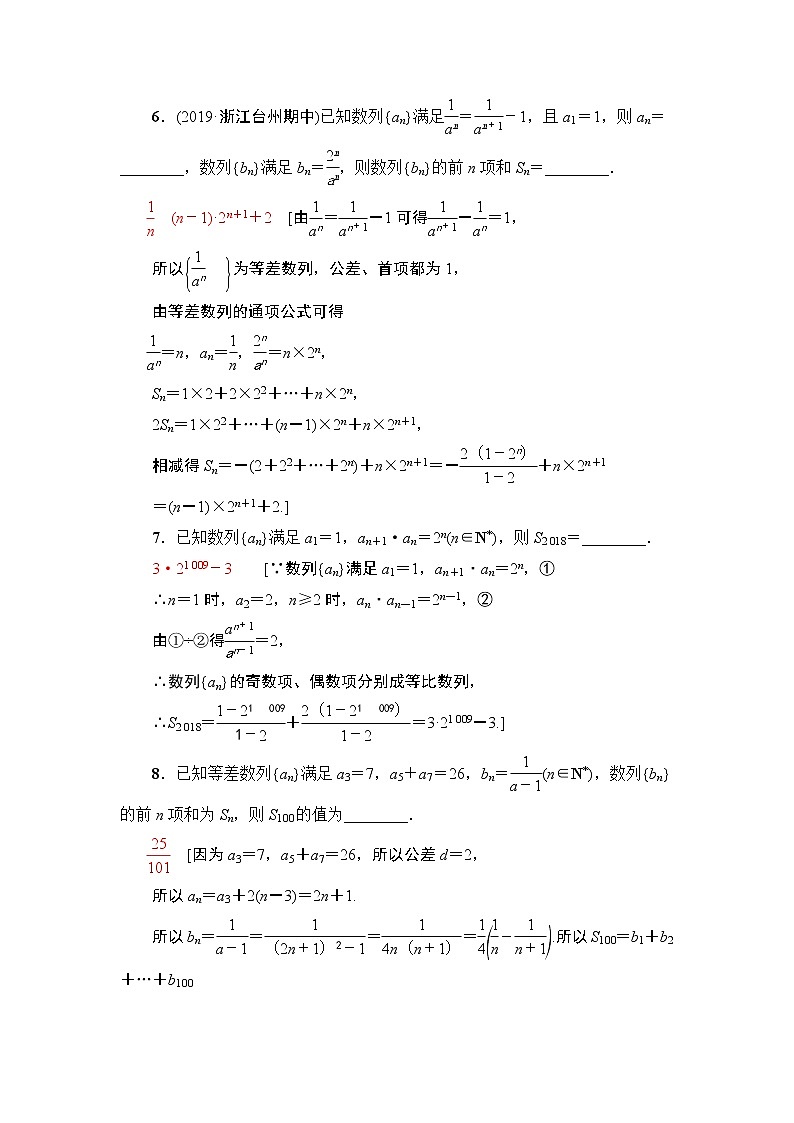 6．(2019·浙江台州期中)已知数列{an}满足1/an=1/an+1-1，且a1=1，则an=
________，数列{bn}满足bn=2n/an，则数列{bn}的前n项和Sn=________.
1/n (n-1)·2n+1+2 [由1/an=1/an+1-1可得1/an+1-1/an=1，
所以{1/an}为等差数列，公差、首项都为1，
由等差数列的通项公式可得
1/an=n，an=1/n，2n/an=n×2n，
Sn=1×2+2×22+…+n×2n，
2Sn=1×22+…+(n-1)×2n+n×2n+1，
相减得Sn=-(2+22+…+2n)+n×2n+1=-2（1-2n）/1-2+n×2n+1
=(n-1)×2n+1+2.]
7．已知数列{an}满足a1=1，an+1·an=2n(n∈N*)，则S2 018=________.
3·21 009-3 [∵数列{an}满足a1=1，an+1·an=2n，①
∴n=1时，a2=2，n≥2时，an·an-1=2n-1，②
由①÷②得an+1/an-1=2，
∴数列{an}的奇数项、偶数项分别成等比数列，
∴S2 018=1-21 009/1-2+2（1-21 009）/1-2=3·21 009-3.]
8．已知等差数列{an}满足a3=7，a5+a7=26，bn=1/a-1(n∈N*)，数列{bn}
的前n项和为Sn，则S100的值为________.
25/101 [因为a3=7，a5+a7=26，所以公差d=2，
所以an=a3+2(n-3)=2n+1.
所以bn=1/a-1=1/（2n+1）2-1=1/4n（n+1）=1/4(1/n-1/n+1).所以S100=b1+b2
+…+b100